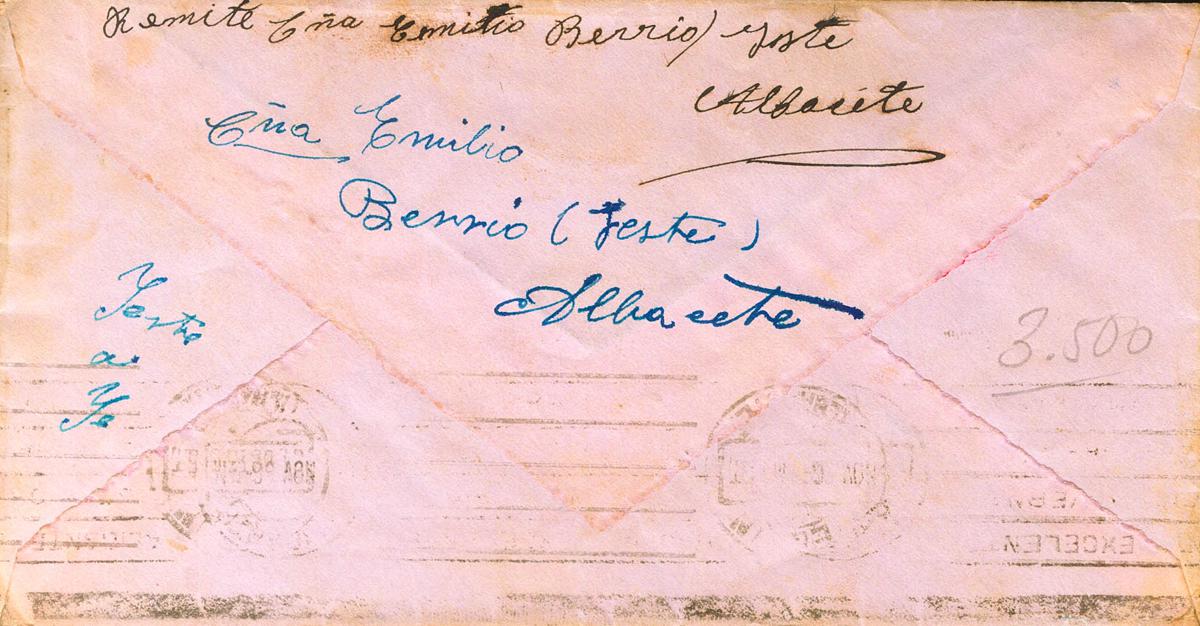 Remite Cña Emilio Berrio) Yeste
Albacete
Cña Emilio
Berrio (Yeste)
Albacete
Yeste
a
Ye
3.500
NOV
NOV
EXCELEN